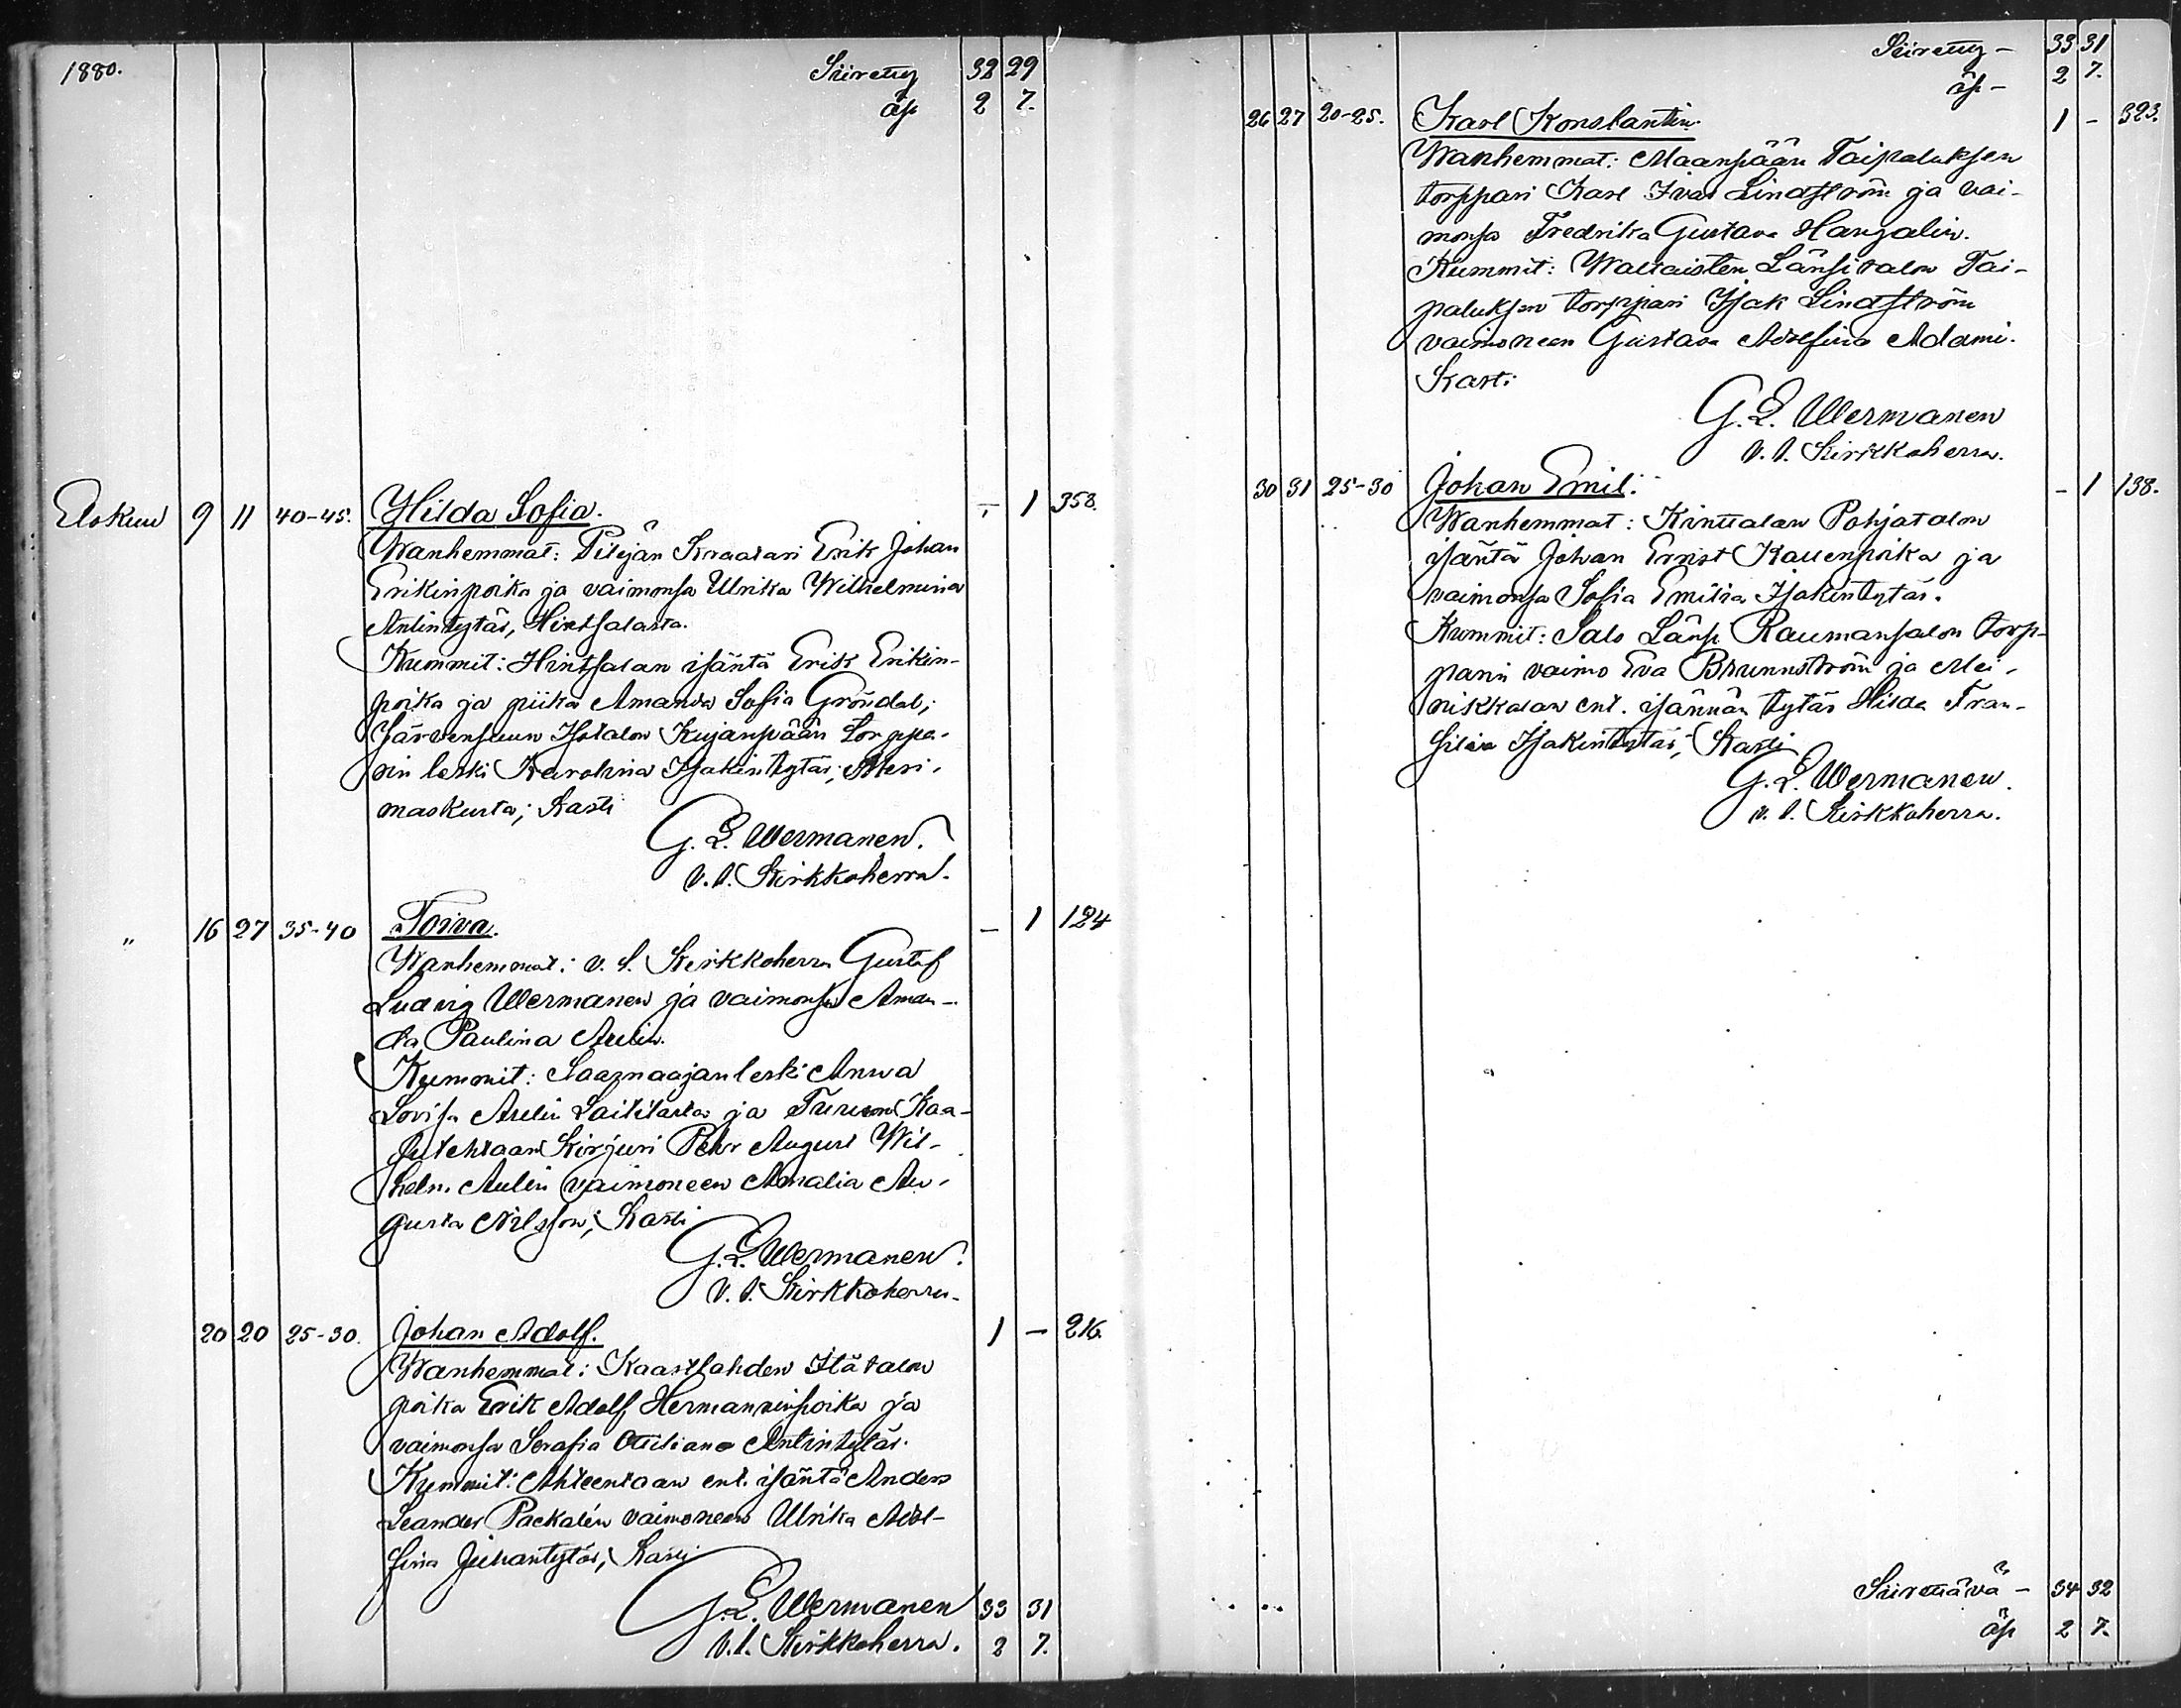 1880.
Siirretty 32 29
äp 2 7.
Elokuu 9 11 40-45. Hilda Sofia. - 1 358.
Wanhemmat: Pitäjän Kraatari Erik Johan
Erikinpoika ja vaimonsa Ulrika Wilhelmina
Antintytär, Hintsalasta.
Kummit: Hintsalan isäntä Erik Erikin-
poika ja piika Amanda Sofia Gröndal;
Järvensuun Isotalon Kujanpään torppa-
rin leski Karolina Isakintytär; Meri-
maskusta; Kasti
G. L. Wermanen.
v. t. Kirkkoherra.
" 16 27 35-40 Toiva. - 1 124
Wanhemmat: v. t. Kirkkoherra Gustaf
Ludvig Wermanen ja vaimonsa Aman-
da Paulina Aulin.
Kummit: Saarnaajan leski Anna
Lovisa Aulin Laitilasta ja Turun Kaa-
sutehtaan Kirjuri Pehr August Wil-
helm Aulin vaimoneen Amalia Au-
gusta Nilsson; Kasti
G. L. Wermanen.
v. t. Kirkkoherra.
20 20 25-30. Johan Adolf. 1 - 216.
Wanhemmat: Kaastlahden Itätalon
poika Erik Adolf Hermanninpoika ja
vaimonsa Serafia Ottiliana Antintytär.
Kummit: Ahteentaan ent. isäntä Anders
Leander Packalén vaimoneen Ulrika Adol-
fina Juhantytär; Kasti
G. L. Wermanen 33 31
v. t. Kirkkoherra. 2 7.
Siirretty - 33 31
äp - 2 7.
26 27 20-25. Karl Konstantin. 1 - 323.
Wanhemmat: Maanpään Taipaluksen
torppari Karl Ivar Lindström ja vai-
monsa Fredrika Gustava Hangalin.
Kummit: Waltaisten Länsitalon Tai-
paluksen torppari Isak Lindström
vaimoneen Gustava Adolfina Adami.
Kasti
G. L. Wermanen
v. t. Kirkkoherra.
30 31 25-30 Johan Emil. - 1 138.
Wanhemmat: Kinttalan Pohjatalon
isäntä Johan Ernst Kallenpoika ja
vaimonsa Sofia Emilia Isakintytär.
Kummit: Salo Länsi Raumansalon torp-
parin vaimo Eva Brunnström ja Mei-
nikkalan ent. isännän tytär Hilda Fran-
siliia Isakintytär; Kasti
G. L. Wermanen.
v. t. Kirkkoherra.
Siirrettävä - 34 32
äp 2 7.